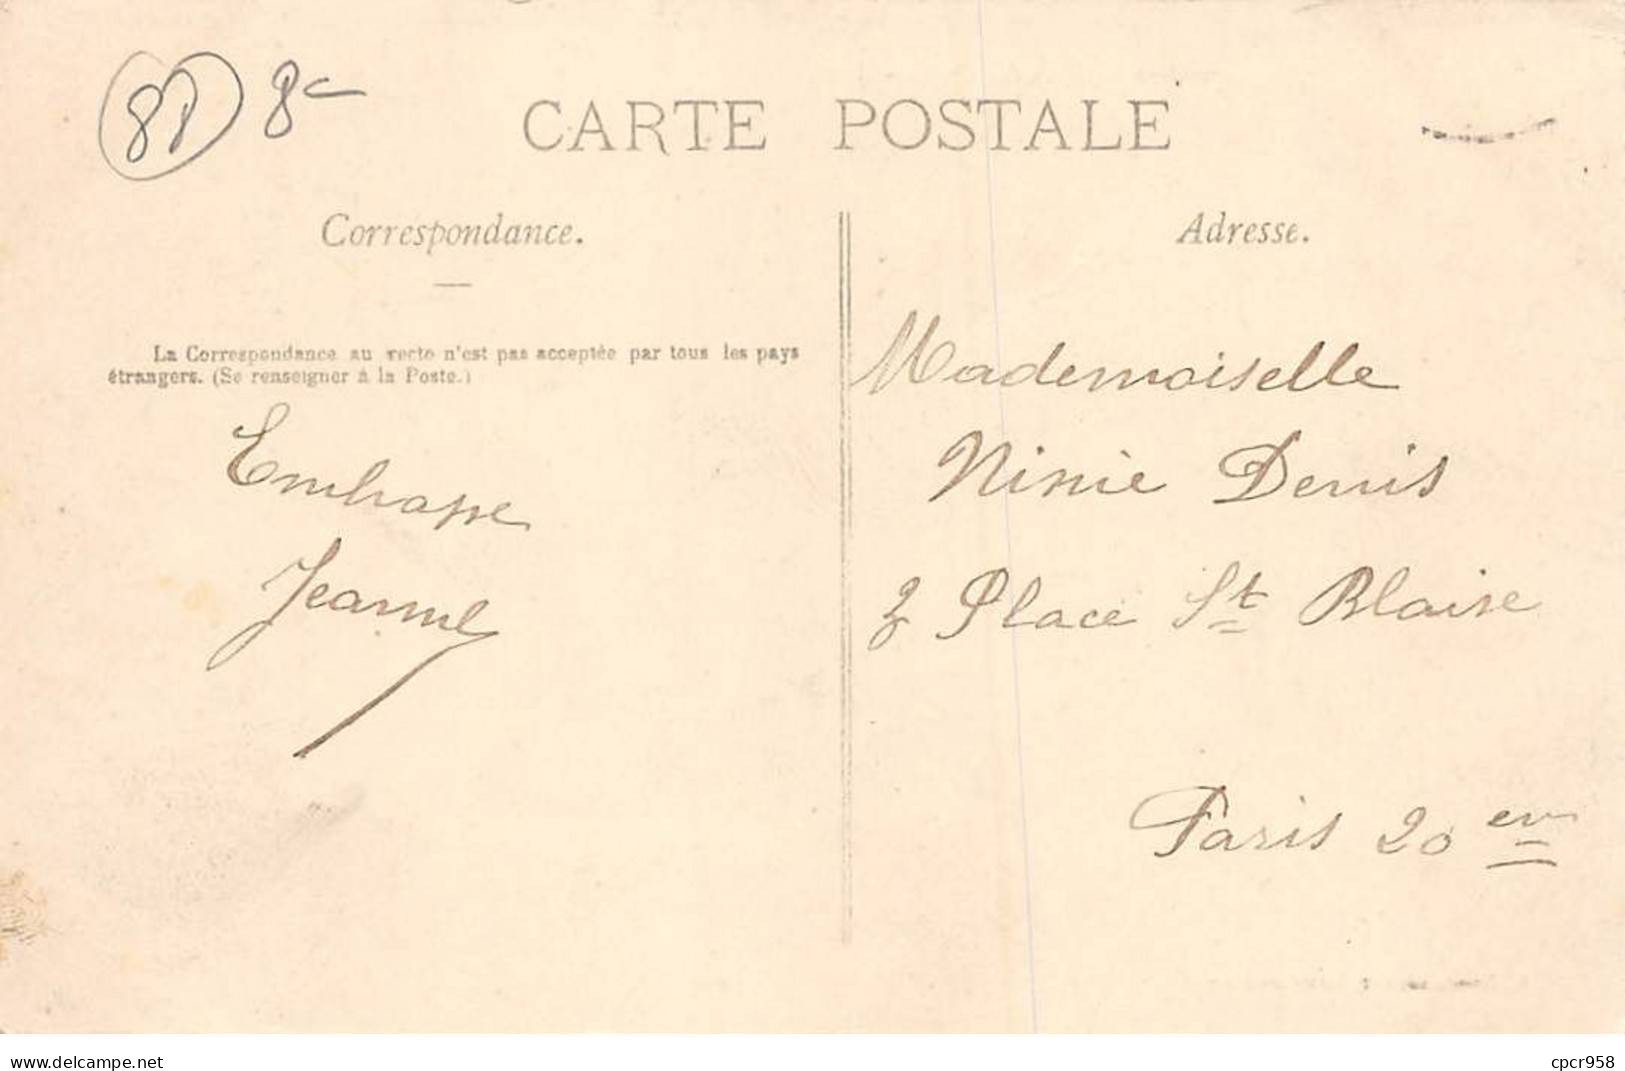 8P 8-
CARTE POSTALE
Correspondance.
Adresse.
La Correspondance au recto n'est pas acceptée par tous les pays
étrangers. (Se renseigner à la Poste.)
Embrasse
Jeanne
Mademoiselle
Ninie Denis
Place St Blaise
Paris 20 em
www.delcampe.net
cpcr958